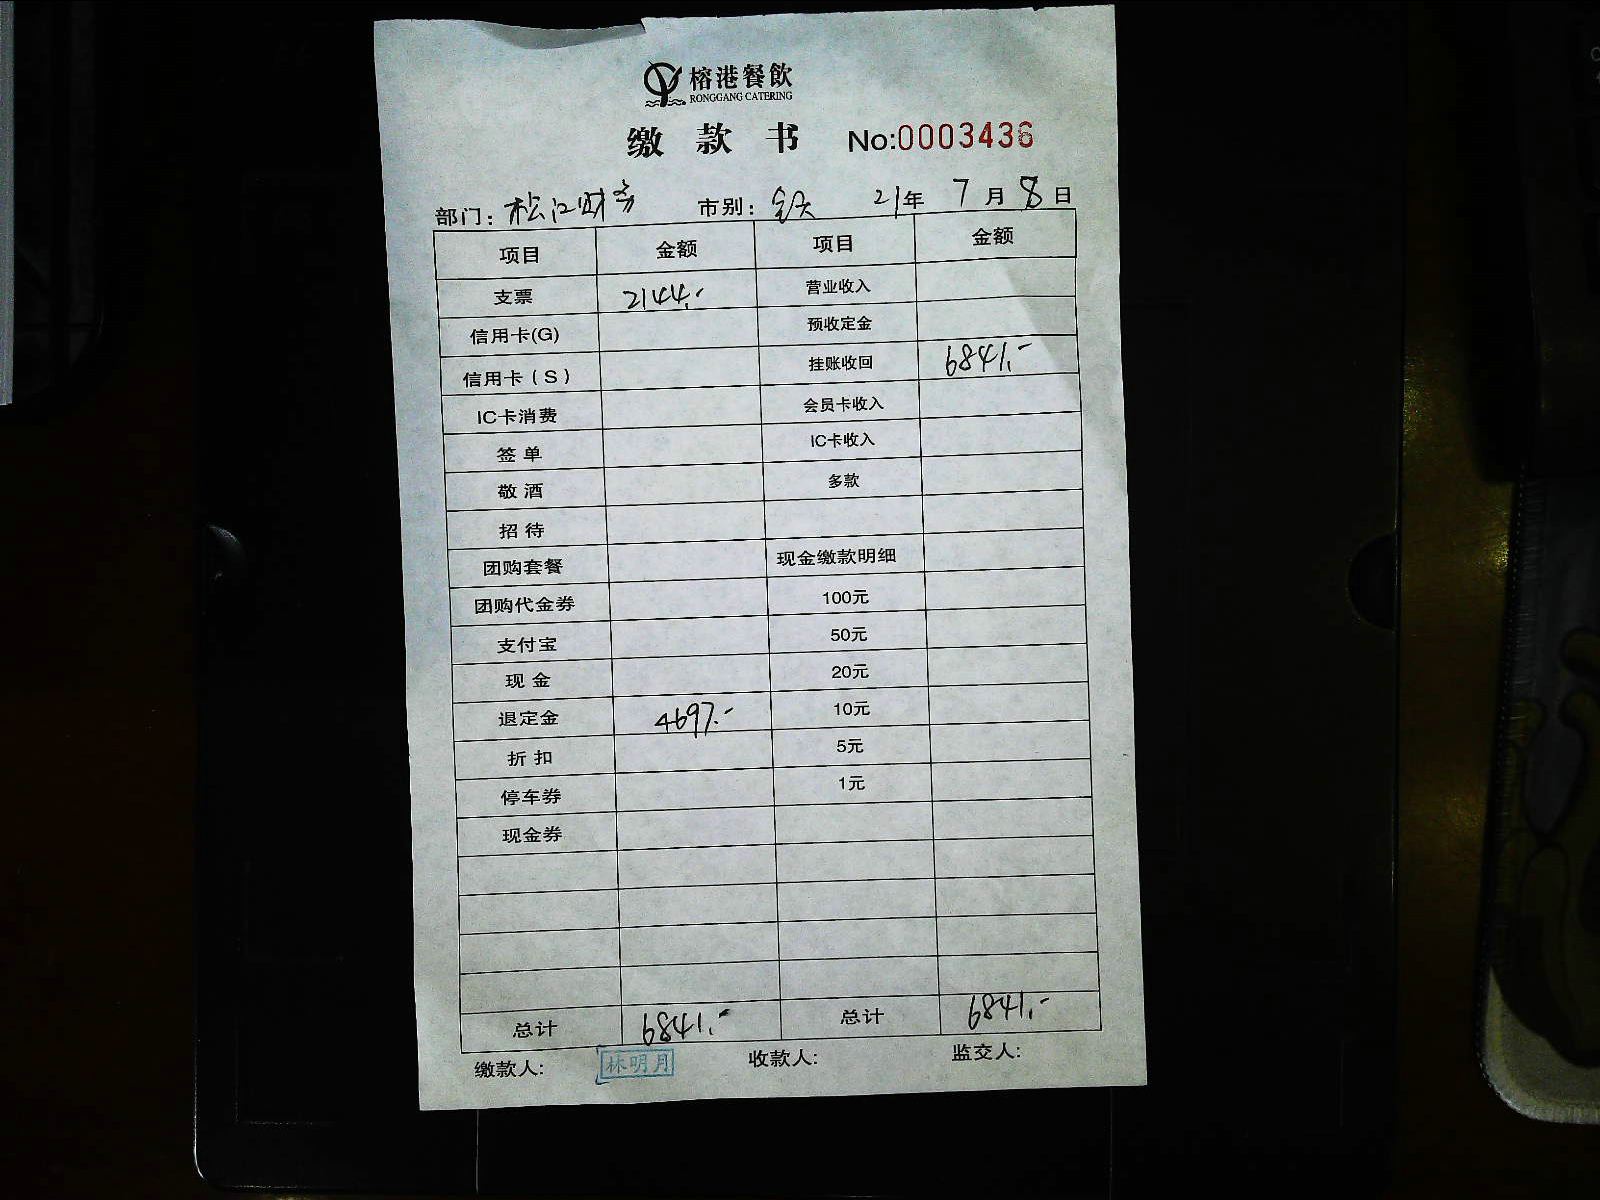 榕港餐飲
RONGGANG CATERING
缴款书 No:0003436
部门: 松江财务 市别: 全天 21年 7月 8日
项目 金额 项目 金额
支票 2144.- 营业收入
信用卡(G) 预收定金
信用卡(S) 挂账收回 6841.-
IC卡消费 会员卡收入
签单 IC卡收入
敬酒 多款
招待
团购套餐 现金缴款明细
团购代金券 100元
支付宝 50元
现金 20元
退定金 4697.- 10元
折扣 5元
停车券 1元
现金券
总计 6841.- 总计 6841.-
缴款人: 林明月 收款人: 监交人: